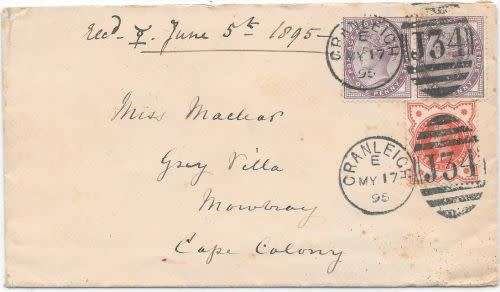 Recd. June 5th 1895
CRANLEIGH
E
MY 17
95
J34
Miss Maclear
Gray Villa
Mowbray
Cape Colony
CRANLEIGH
E
MY 17
95
J34